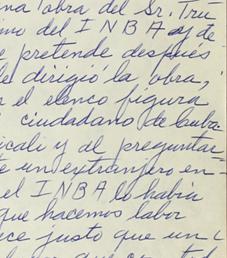 na obra del Sr. Tru
imo del INBA y de
e pretende después
le dirigió la obra,
r el elenco figura
ciudadano de Cuba
icali y al preguntar-
te un extranjero en-
el INBA lo había
que hacemos labor
ce justo que un